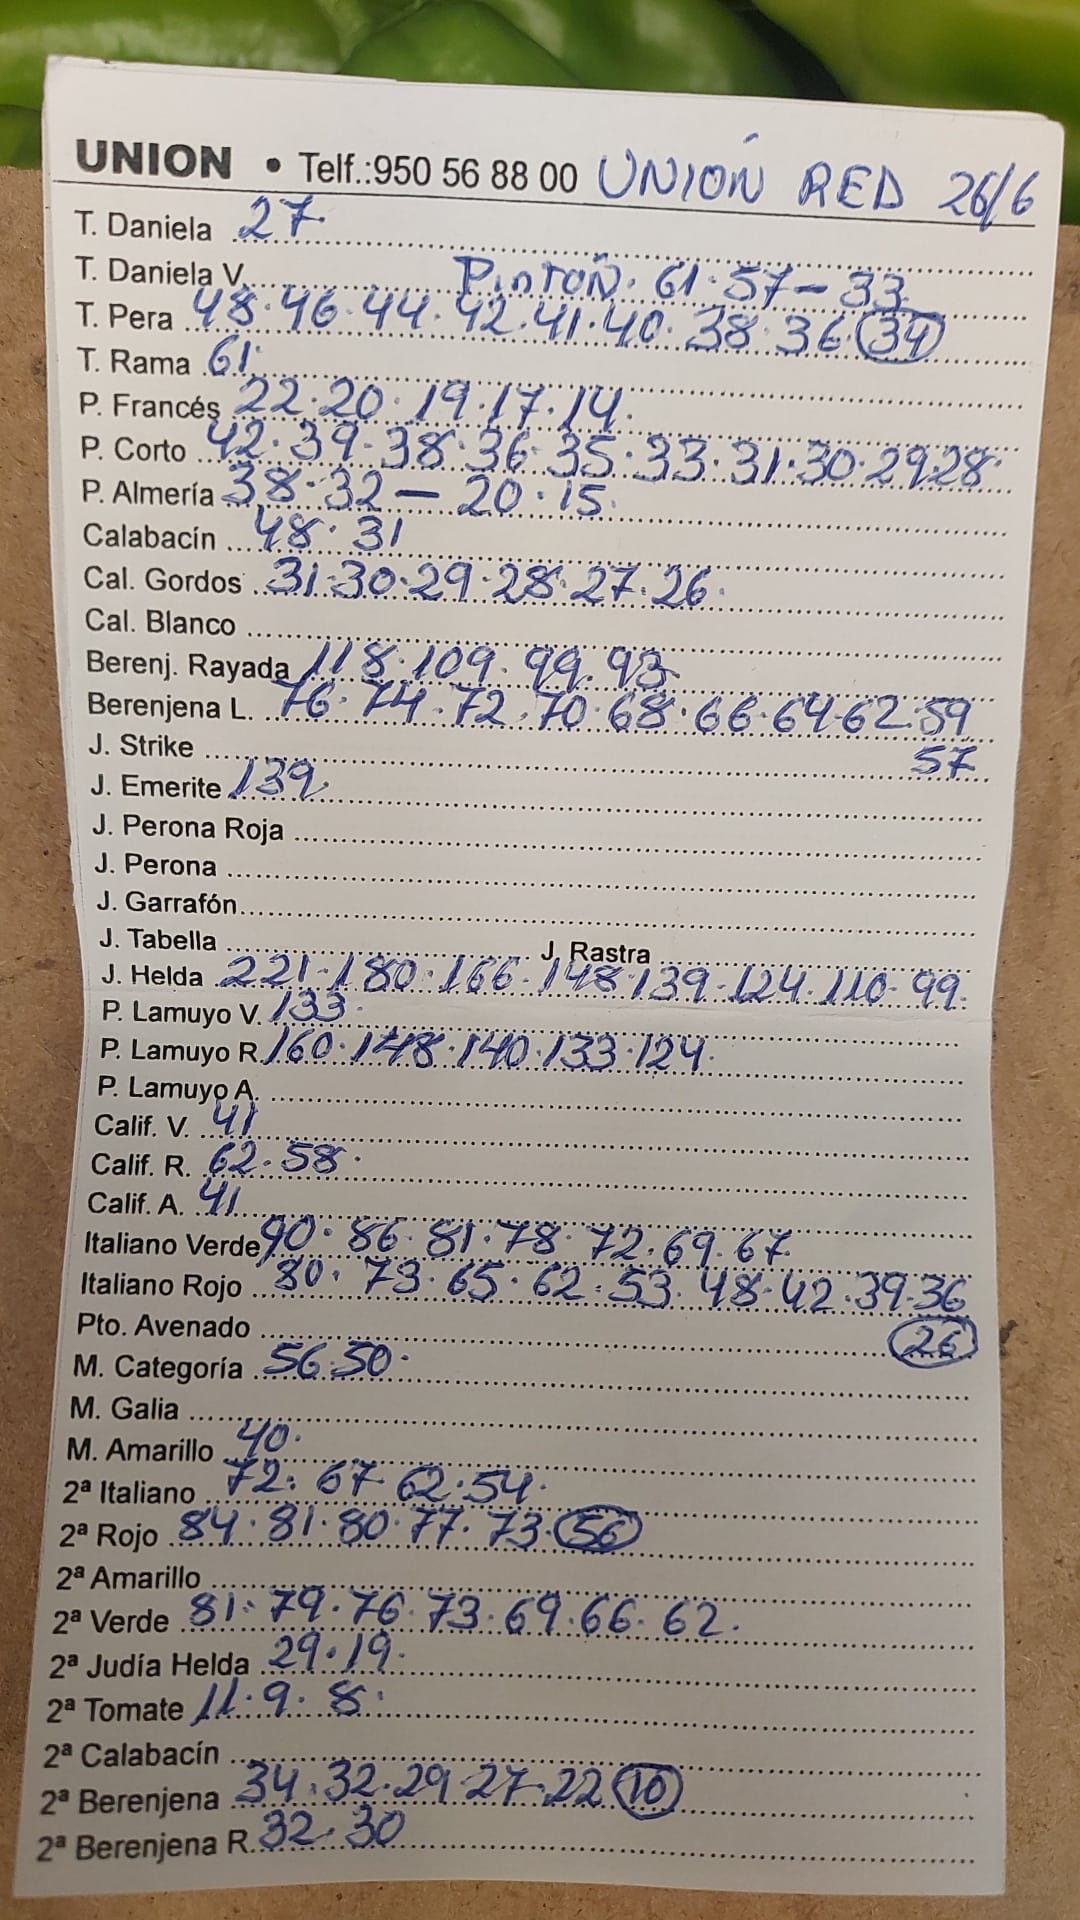 UNION • Telf.:950 56 88 00 UNIÓN RED 26/6
T. Daniela 27.
T. Daniela V. PinTOÑ. 61. 57 - 33
T. Pera 48. 46. 44. 42. 41. 40. 38. 36 34
T. Rama 61.
P. Francés 22. 20. 19. 17. 14.
P. Corto 42. 39. 38. 36. 35. 33. 31. 30. 29. 28.
P. Almería 38. 32 - 20. 15.
Calabacín 48. 31
Cal. Gordos 31. 30. 29. 28. 27. 26.
Cal. Blanco
Berenj. Rayada 118. 109. 99. 93.
Berenjena L. 76. 74. 72. 70. 68. 66. 64. 62. 59
J. Strike 57
J. Emerite 139.
J. Perona Roja
J. Perona
J. Garrafón
J. Tabella J. Rastra
J. Helda 221. 180. 166. 148. 139. 124. 110. 99.
P. Lamuyo V. 133.
P. Lamuyo R. 160. 148. 140. 133. 124.
P. Lamuyo A.
Calif. V. 41
Calif. R. 62. 58.
Calif. A. 41
Italiano Verde 90. 86. 81. 78. 72. 69. 67.
Italiano Rojo 80. 73. 65. 62. 53. 48. 42. 39. 36
Pto. Avenado 26
M. Categoría 56. 50.
M. Galia
M. Amarillo 40.
2ª Italiano 72. 67. 62. 54.
2ª Rojo 84. 81. 80. 77. 73. 56
2ª Amarillo
2ª Verde 81. 79. 76. 73. 69. 66. 62.
2ª Judía Helda 29. 19.
2ª Tomate 11. 9. 8.
2ª Calabacín
2ª Berenjena 34. 32. 29. 27. 22 10
2ª Berenjena R. 32. 30